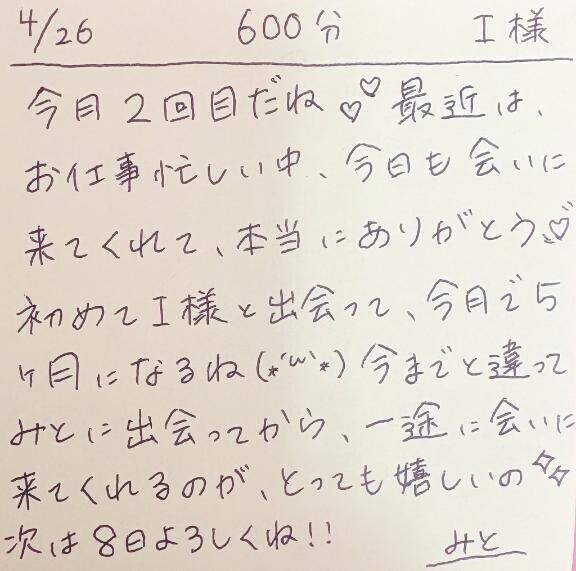 4/26 600分 I様
今月2回目だね♡♡最近は、
お仕事忙しい中、今日も会いに
来てくれて、本当にありがとう♡
初めてI様と出会って、今月で5
ヶ月になるね(*´ω`*)今までと違って
みとに出会ってから、一途に会いに
来てくれるのが、とっても嬉しいの✧✧
次は8日よろしくね!!
みと